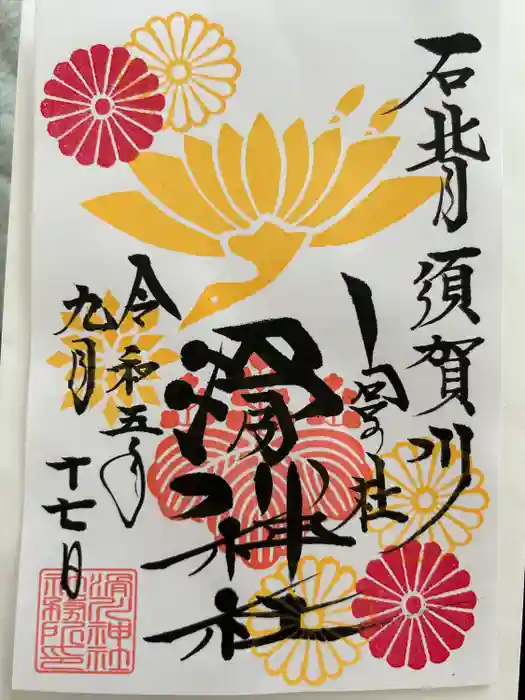 石背 須賀川
社
滑川神社
令和五年
九月
十七日
滑川神社
社務所印